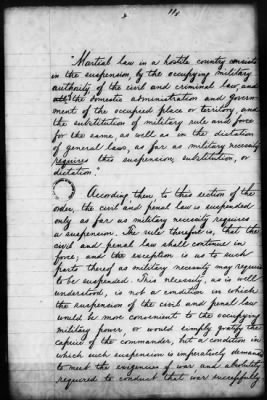 "Martial law in a hostile country consists
in the suspension, by the occupying military
authority, of the civil and criminal law, and
the domestic administration and govern-
ment of the occupied place or territory, and
the substitution of military rule and force
for the same, as well as in the dictation
of general laws, as far as military necessity
requires this suspension, substitution, or
dictation."
According then, to this section of the
order, the civil and penal law is suspended
only as far as military necessity requires
a suspension. The rule therefore is, that the
civil and penal law shall continue in
force; and the exception is as to such
parts thereof as military necessity may require
to be suspended. This necessity, as is well
understood, is not a condition in which
the suspension of the civil and penal law
would be more convenient to the occupying
military power, or would simply gratify the
caprice of the commander, but a condition in
which such suspension is imperatively demanded
to meet the exigencies of war and absolutely
required to conduct that war successfully